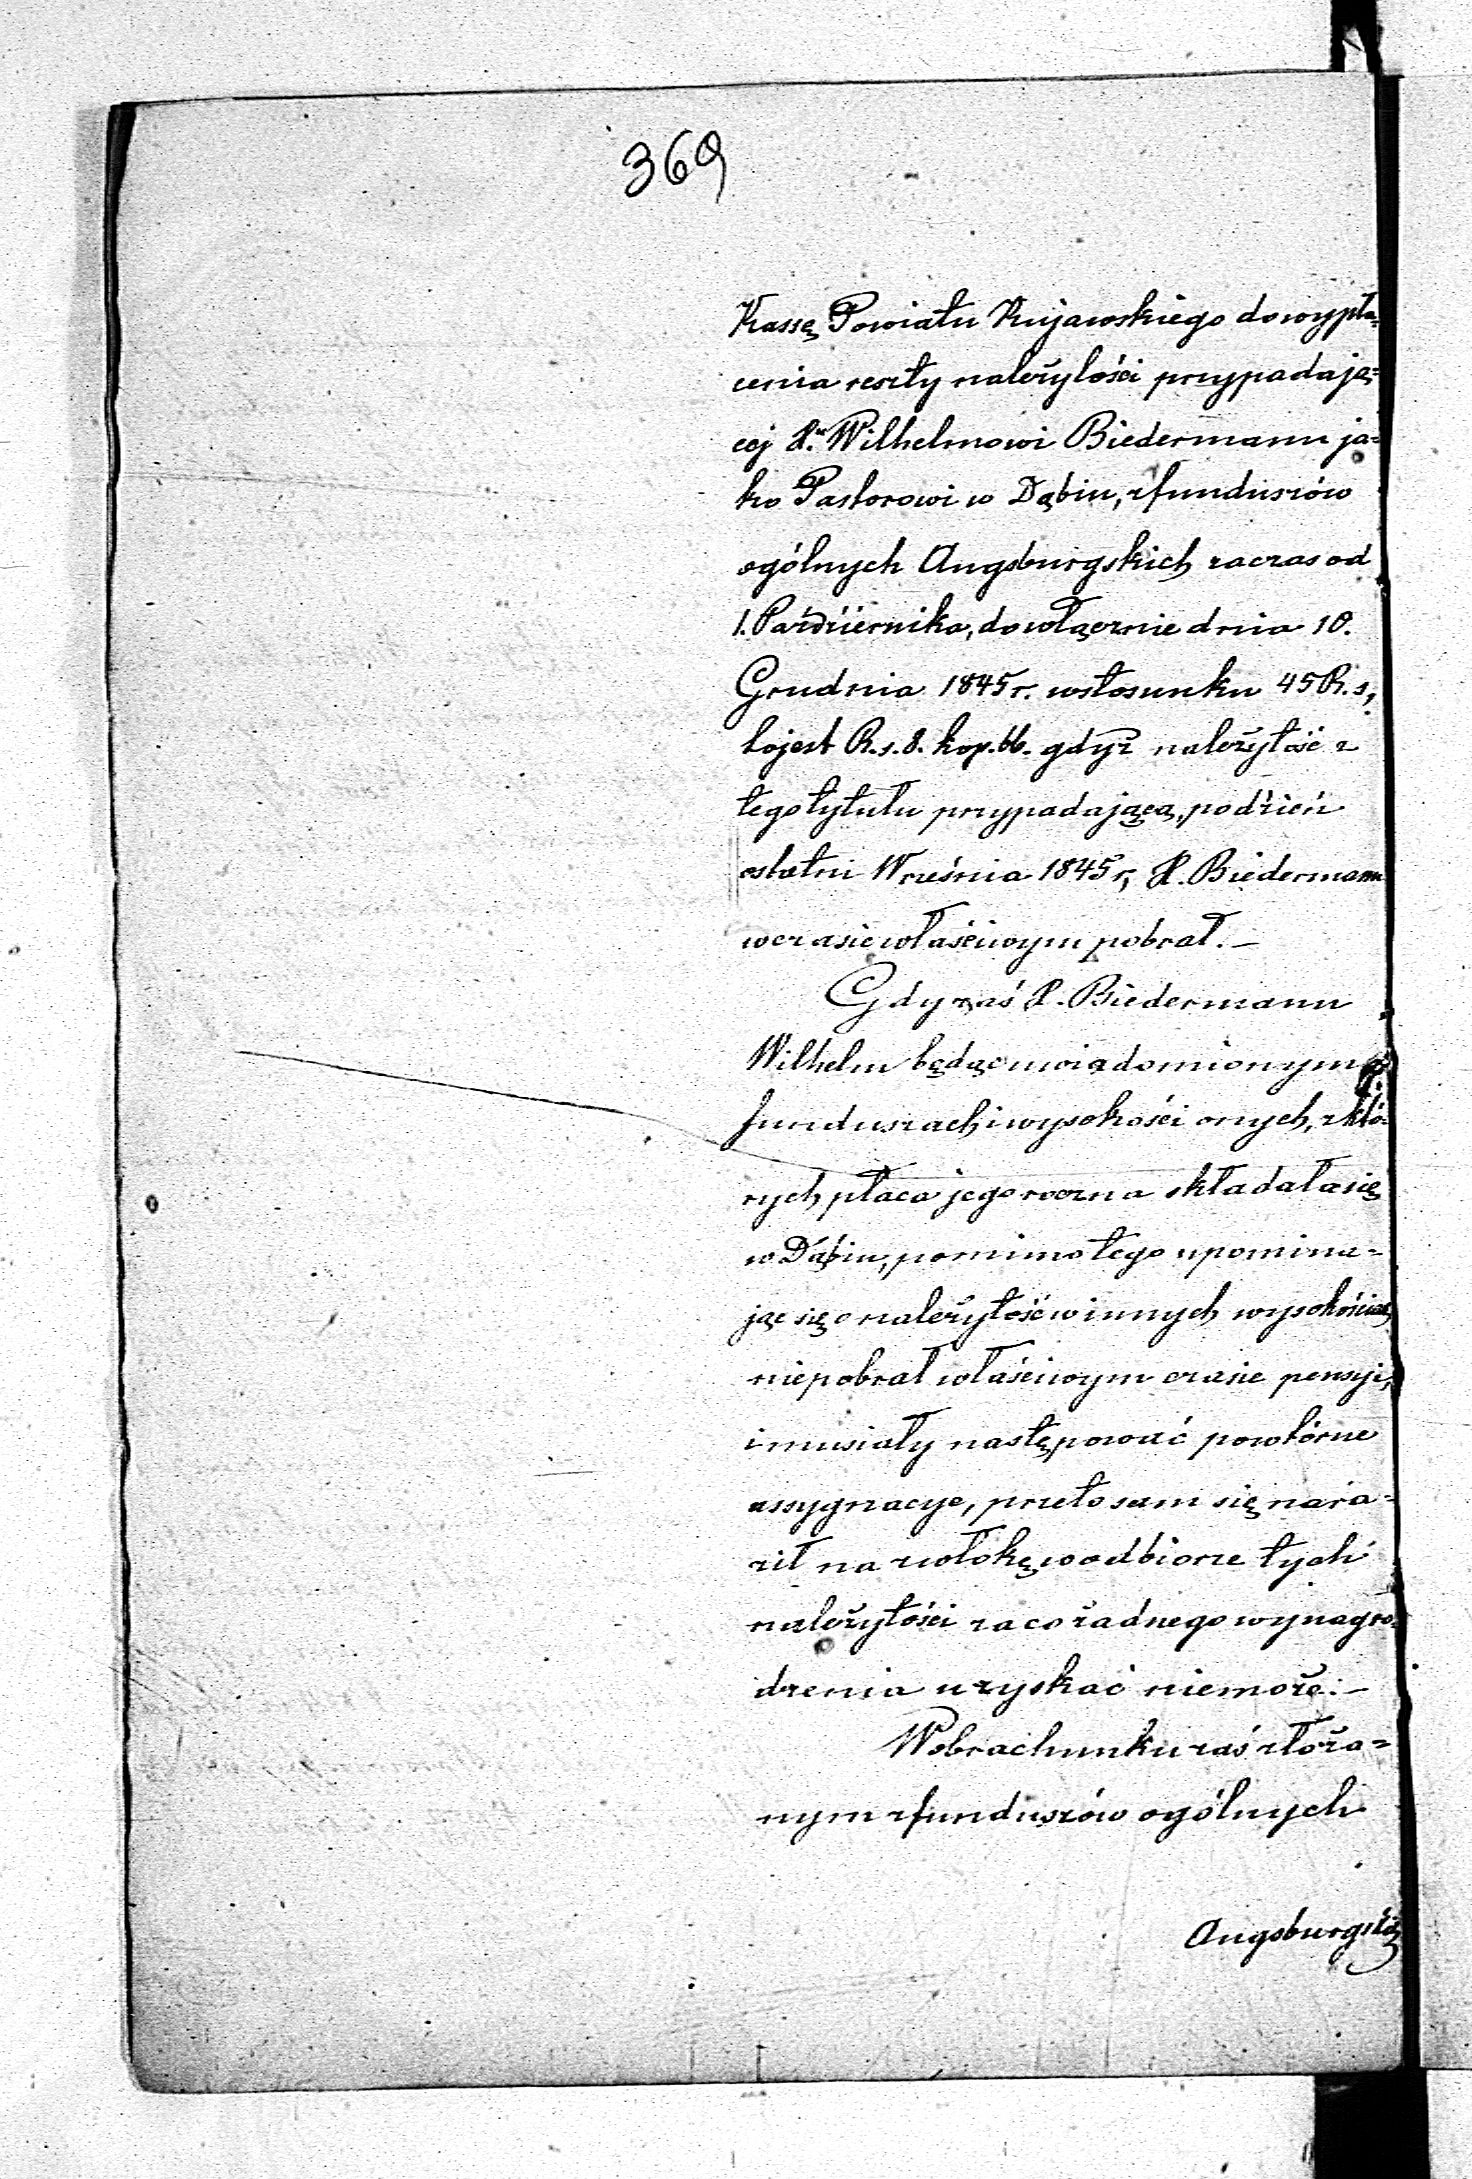 369
Kassę Powiatu Kujawskiego do wypła=
cenia reszty należytości przypadają=
cej X. Wilhelmowi Biedermann ja=
ko Pastorowi w Dąbiu, z funduszów
ogólnych Augsburgskich za czas od
1. Października, do włącznie dnia 10.
Grudnia 1845 r. w stosunku 45 R. s,
to jest R. s. 8. kop. 66. gdyż należytość z
tego tytułu przypadającą, po dzień
ostatni Września 1845 r, X. Biedermann
w czasie właściwym pobrał. —
Gdy zaś X. Biedermann
Wilhelm będąc uwiadomionym o
funduszach i wysokości onych, z któ=
rych płaca jego roczna składała się
w Dąbiu, pomimo tego upomina=
jąc się o należytość w innych wysokościach
nie pobrał właściwym czasie pensyi,
i musiały następować powtórne
assygnacye, przeto sam się nara=
ził na zwłokę w odbiorze tych
należytości za co żadnego wynagro=
dzenia uzyskać nie może. —
W obrachunku zaś złożo=
nym z funduszów ogólnych
Augsburgskich